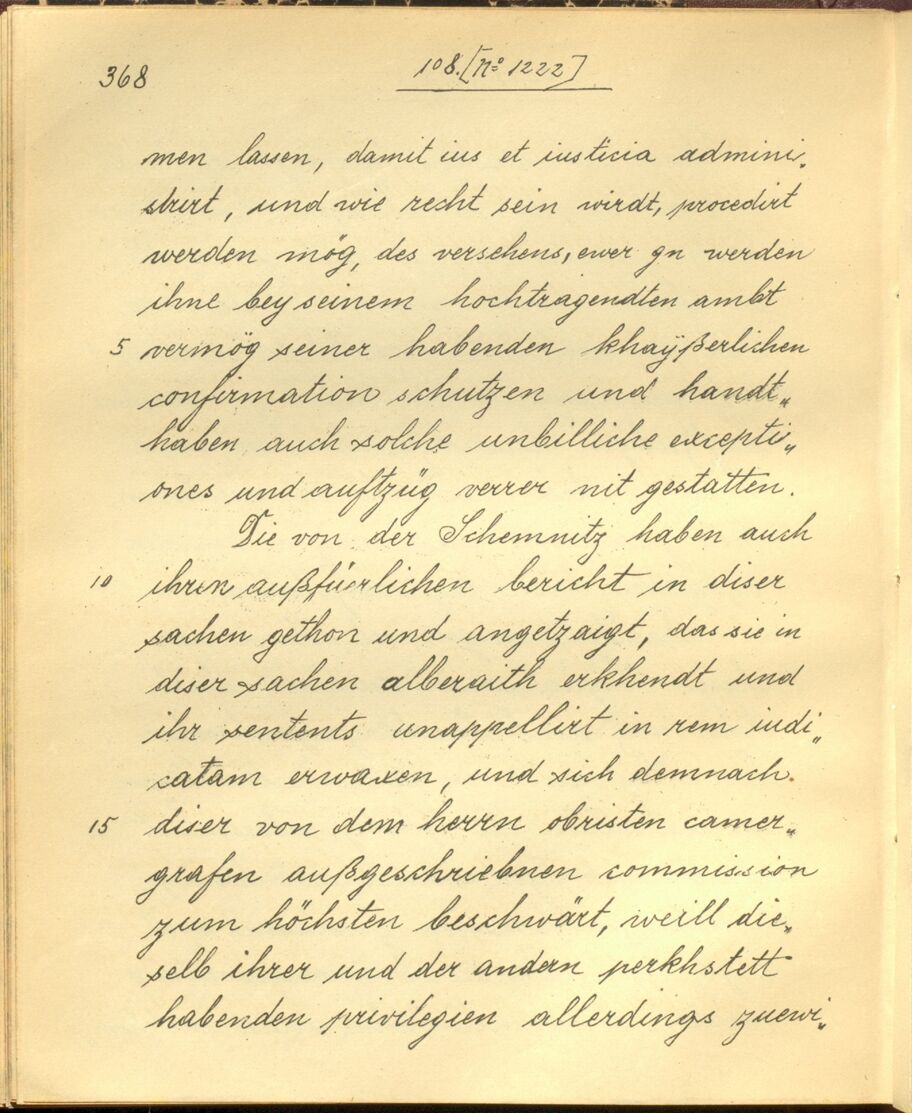 368
108. [No 1222]
men lassen, damit ius et iusticia admini„
strirt, und wie recht sein wirdt, procedirt
werden mög, des versehens, ewer gn werden
ihne bey seinem hochtragendten ambt
5 vermög seiner habenden khaÿßerlichen
confirmation schutzen und handt„
haben, auch solche unbilliche excepti„
ones und auftzüg verrer nit gestatten.
Die von der Schemnitz haben auch
10 ihren außfüerlichen bericht in diser
sachen gethon und angetzaigt, das sie in
diser sachen alberaith erkhendt und
ihr sentents unappellirt in rem iudi„
catam erwaxen, und sich demnach
15 diser von dem herrn obristen camer„
grafen außgeschriebnen commission
zum höchsten beschwärt, weill die„
selb ihrer und der andern perkhstett
habenden privilegien allerdings zuewi„